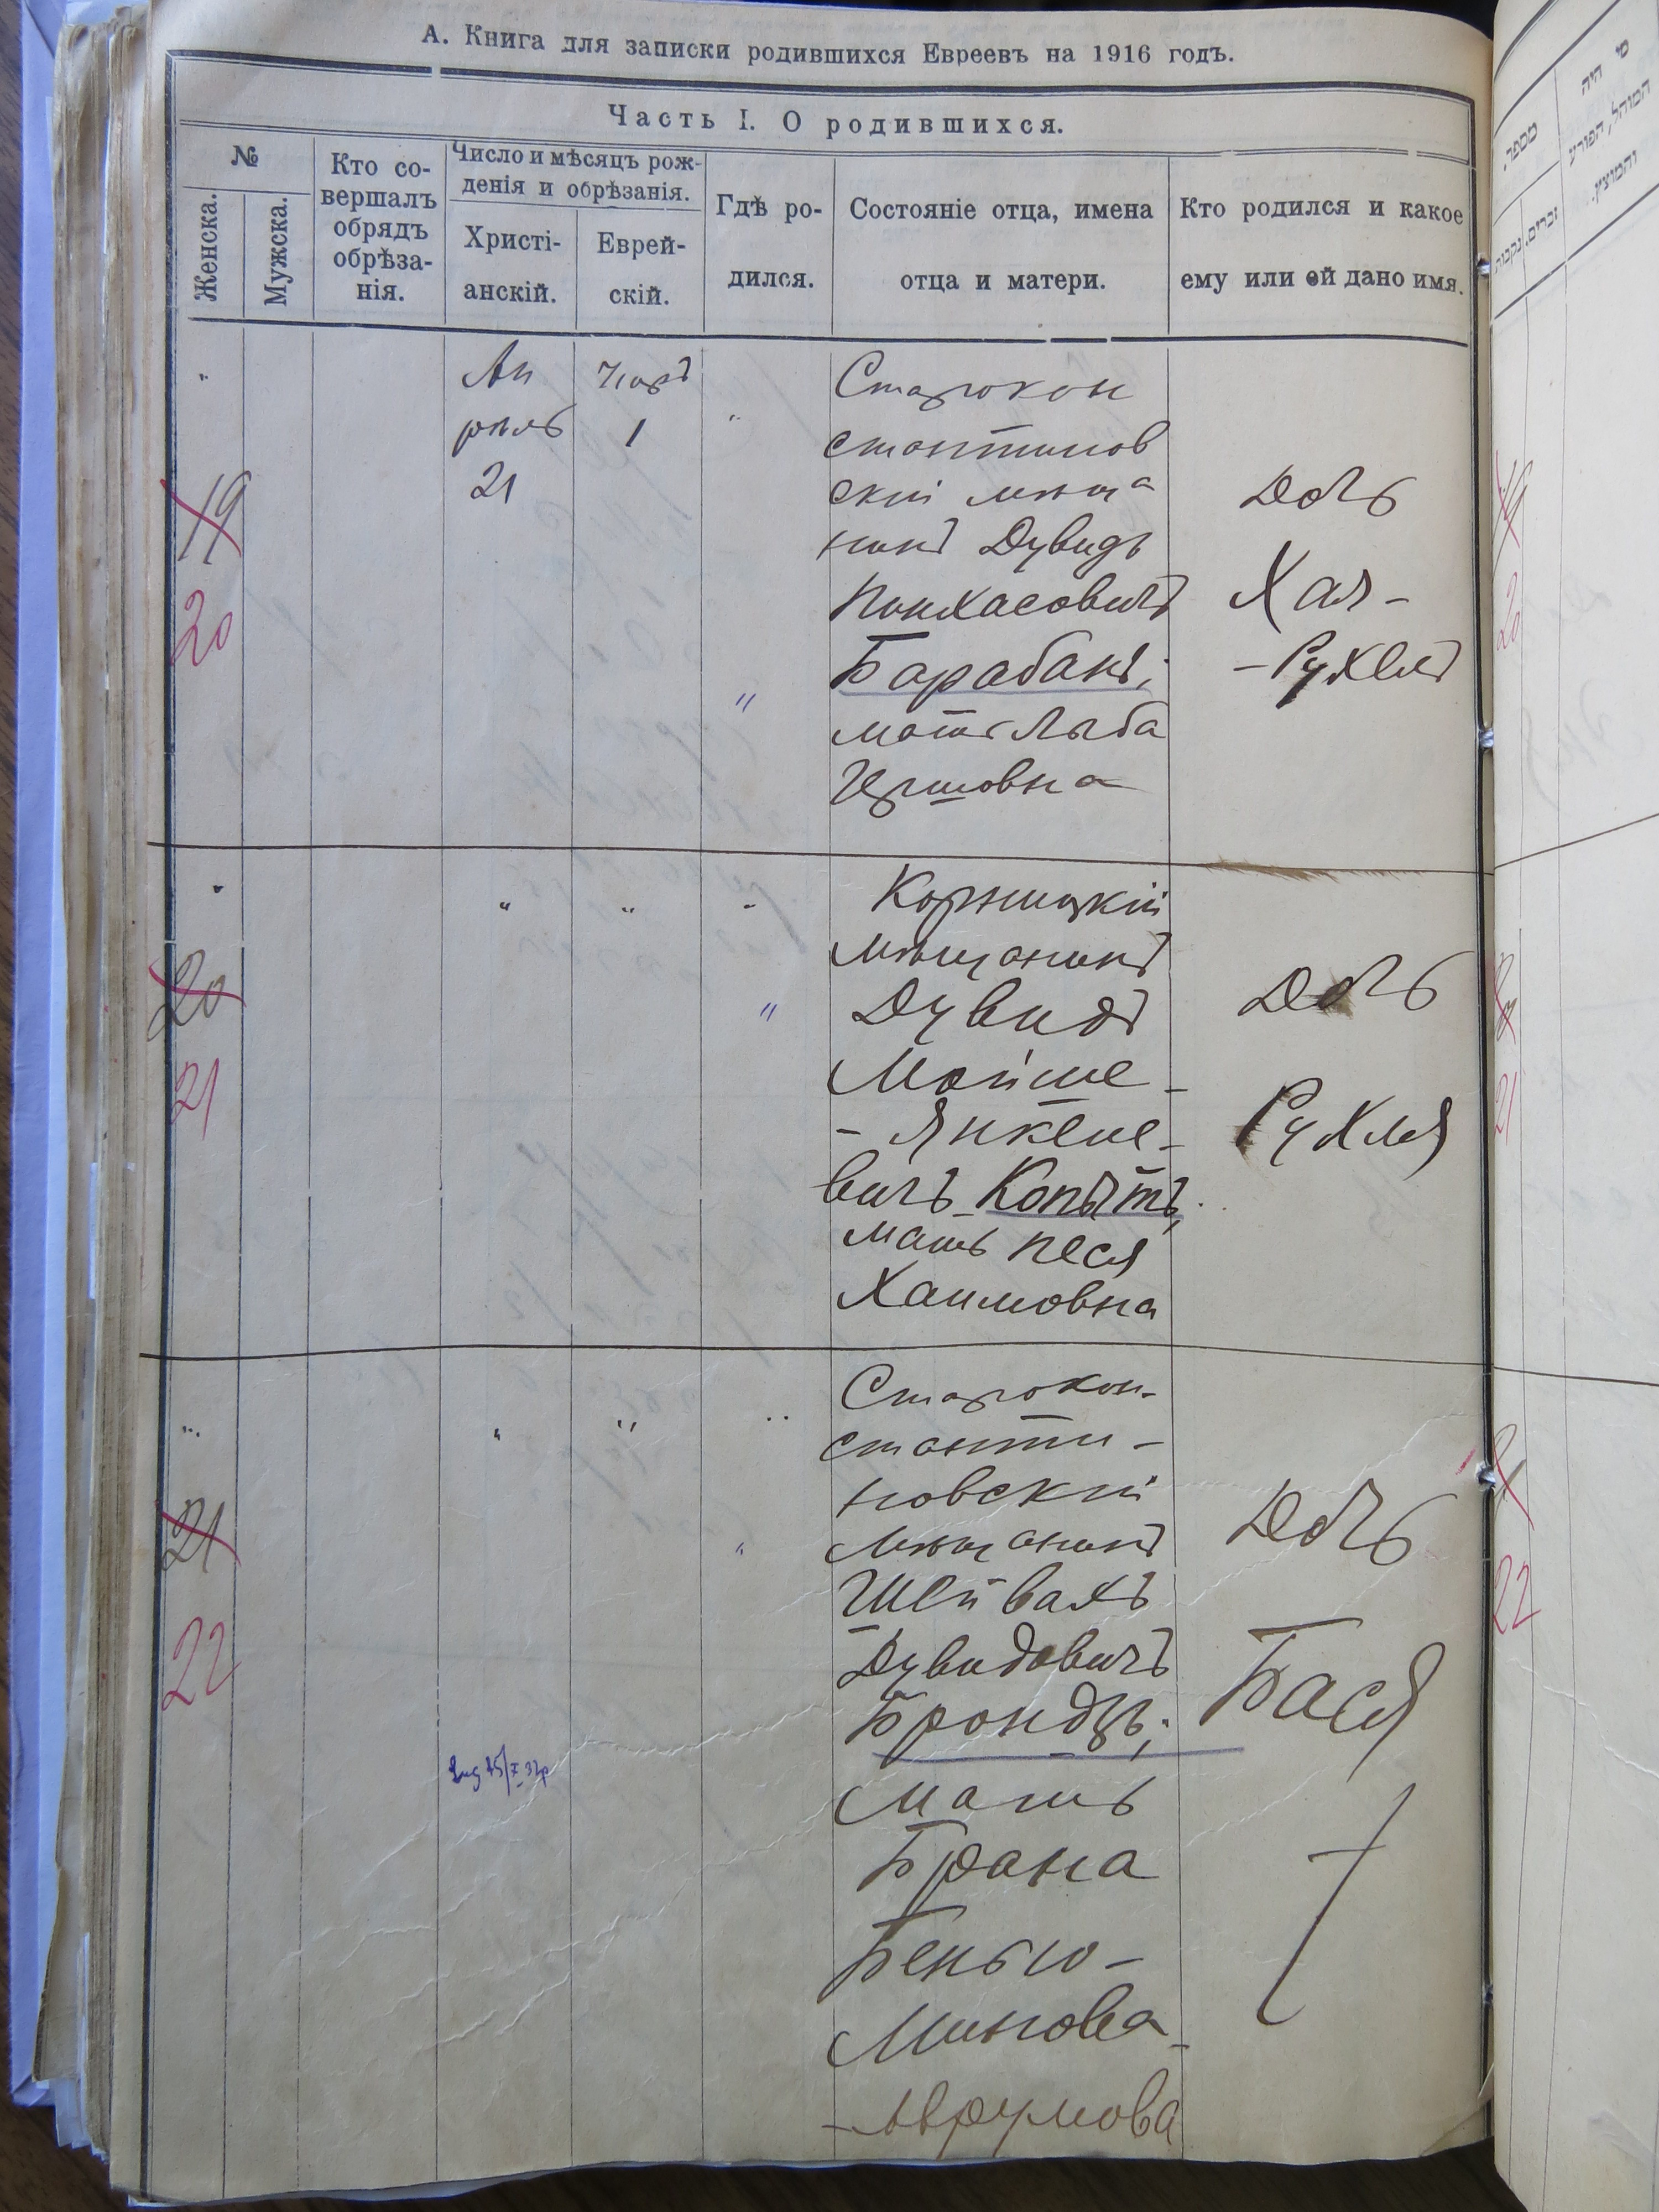 А. Книга для записки родившихся Евреевъ на 1916 годъ.
Часть I. О родившихся.
№
Женска.
Мужска.
Кто со-
вершалъ
обрядъ
обрѣза-
нія.
Число и мѣсяцъ рож-
денія и обрѣзанія.
Христі-
анскій.
Еврей-
скій.
Гдѣ ро-
дился.
Состояніе отца, имена
отца и матери.
Кто родился и какое
ему или ей дано имя.
19
20
Ап
рѣль
21
1
Старокон
стантинов
скій мѣща
нинъ Дувидъ
Пинхасовичъ
Барабанъ;
мать Лыба
Гершовна
Дочь
Хая-
-Рухель
20
21
"
"
"
мѣщанинъ
Дувидъ
Мойше-
-Янкеле-
вичъ Копытъ,
мать Песя
Хаимовна
Дочь
Рухля
21
22
"
"
"
Старокон-
станти-
новскій
мѣщанинъ
Шейвахъ
Дувидовичъ
Брондзъ;
мать
Брана
Бенью-
минова-
-Аврумова
Дочь
Бася
20
21
22
מספר.
זכרים.
נקבות
מי היה
המוהל, הפורע
והמוצץ.